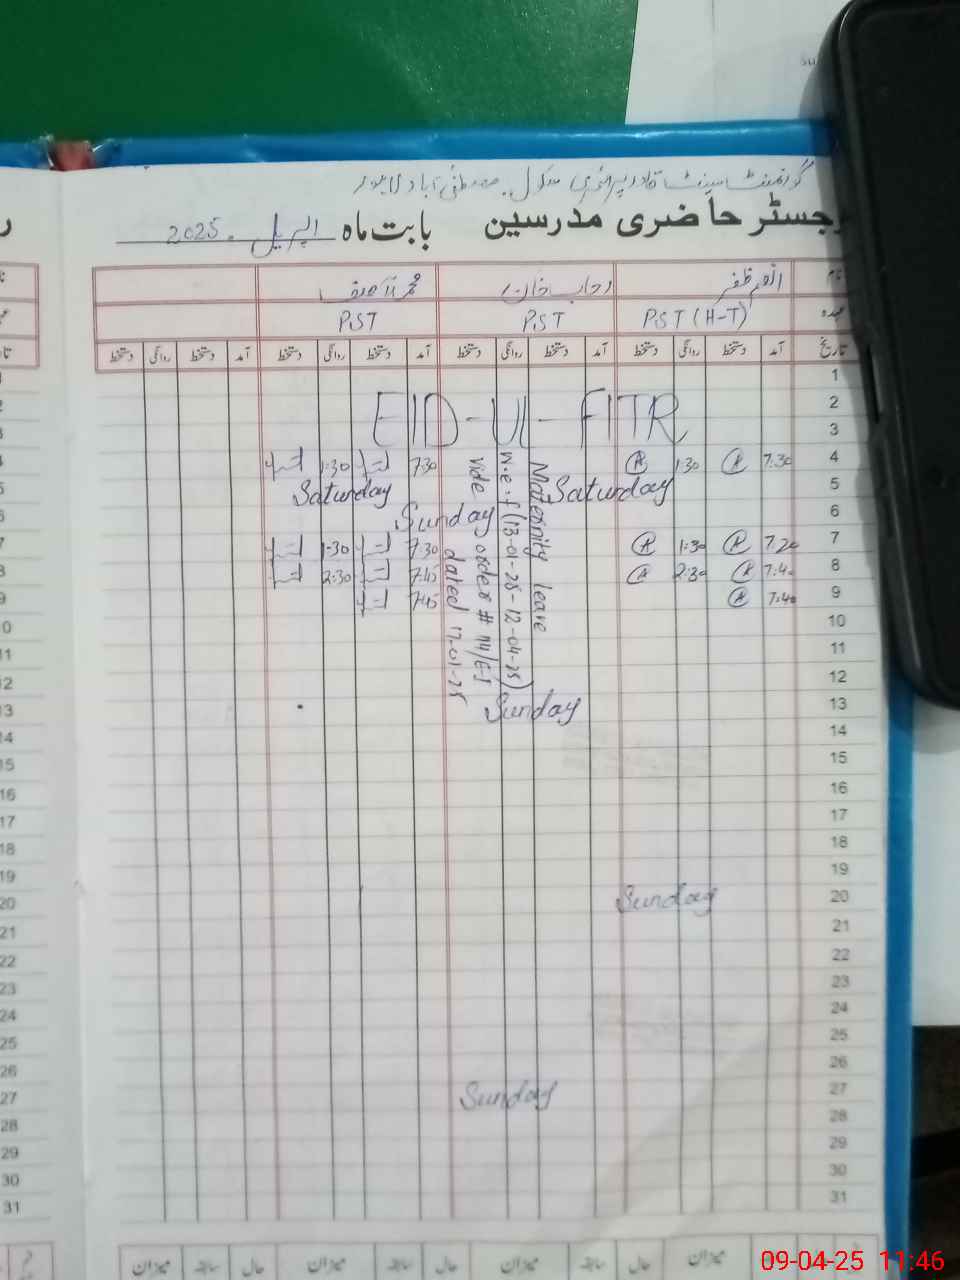 گورنمنٹ سینٹ قادر پرائمری سکول مصطفیٰ آباد لاہور
رجسٹر حاضری مدرسین بابت ماہ اپریل 2025
نام انعم ظفر رحاب خان محمد آصف
عہدہ PST (H-T) PST PST
تاریخ آمد دستخط روانگی دستخط آمد دستخط روانگی دستخط آمد دستخط روانگی دستخط آمد دستخط روانگی دستخط
1
2 EID-UL-FITR
3
4 7:30 1:30 7:30 1:30
5 Saturday Saturday
6 Sunday
7 7:20 1:30 7:30 1:30
8 7:40 2:30 7:45 2:30
9 7:40 7:45
Maternity leave
w.e.f (13-01-25-12-04-25)
vide order # 114/E-I
dated 17-01-25
10
11
12
13 Sunday
14
15
16
17
18
19
20 Sunday
21
22
23
24
25
26
27 Sunday
28
29
30
31
میزان حال سابقہ میزان حال سابقہ میزان حال سابقہ میزان
09-04-25 11:46